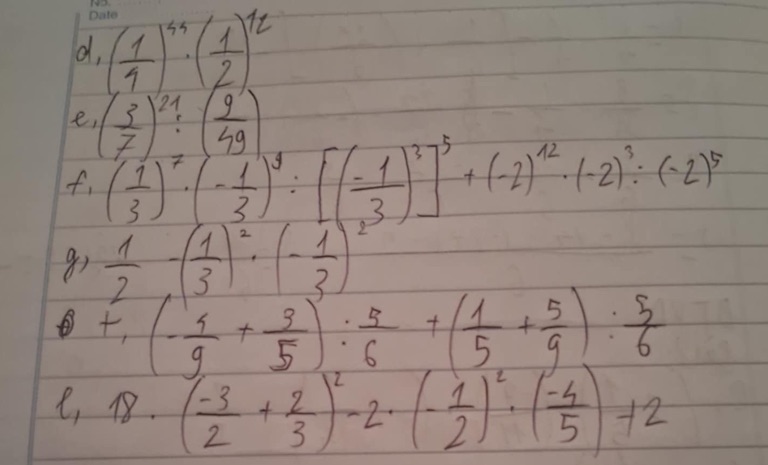 No.
Date
d, (1/4)^44 · (1/2)^12
e, (3/7)^21 : (9/49)
f, (1/3)^7 · (-1/3)^9 : [(-1/3)^3]^5 + (-2)^12 · (-2)^3 : (-2)^5
g, 1/2 - (1/3)^2 · (-1/3)^2
t, (-4/9 + 3/5) : 5/6 + (1/5 + 5/9) : 5/6
l, 18 · (-3/2 + 2/3)^2 - 2 · (-1/2)^2 · (-4/5) + 2